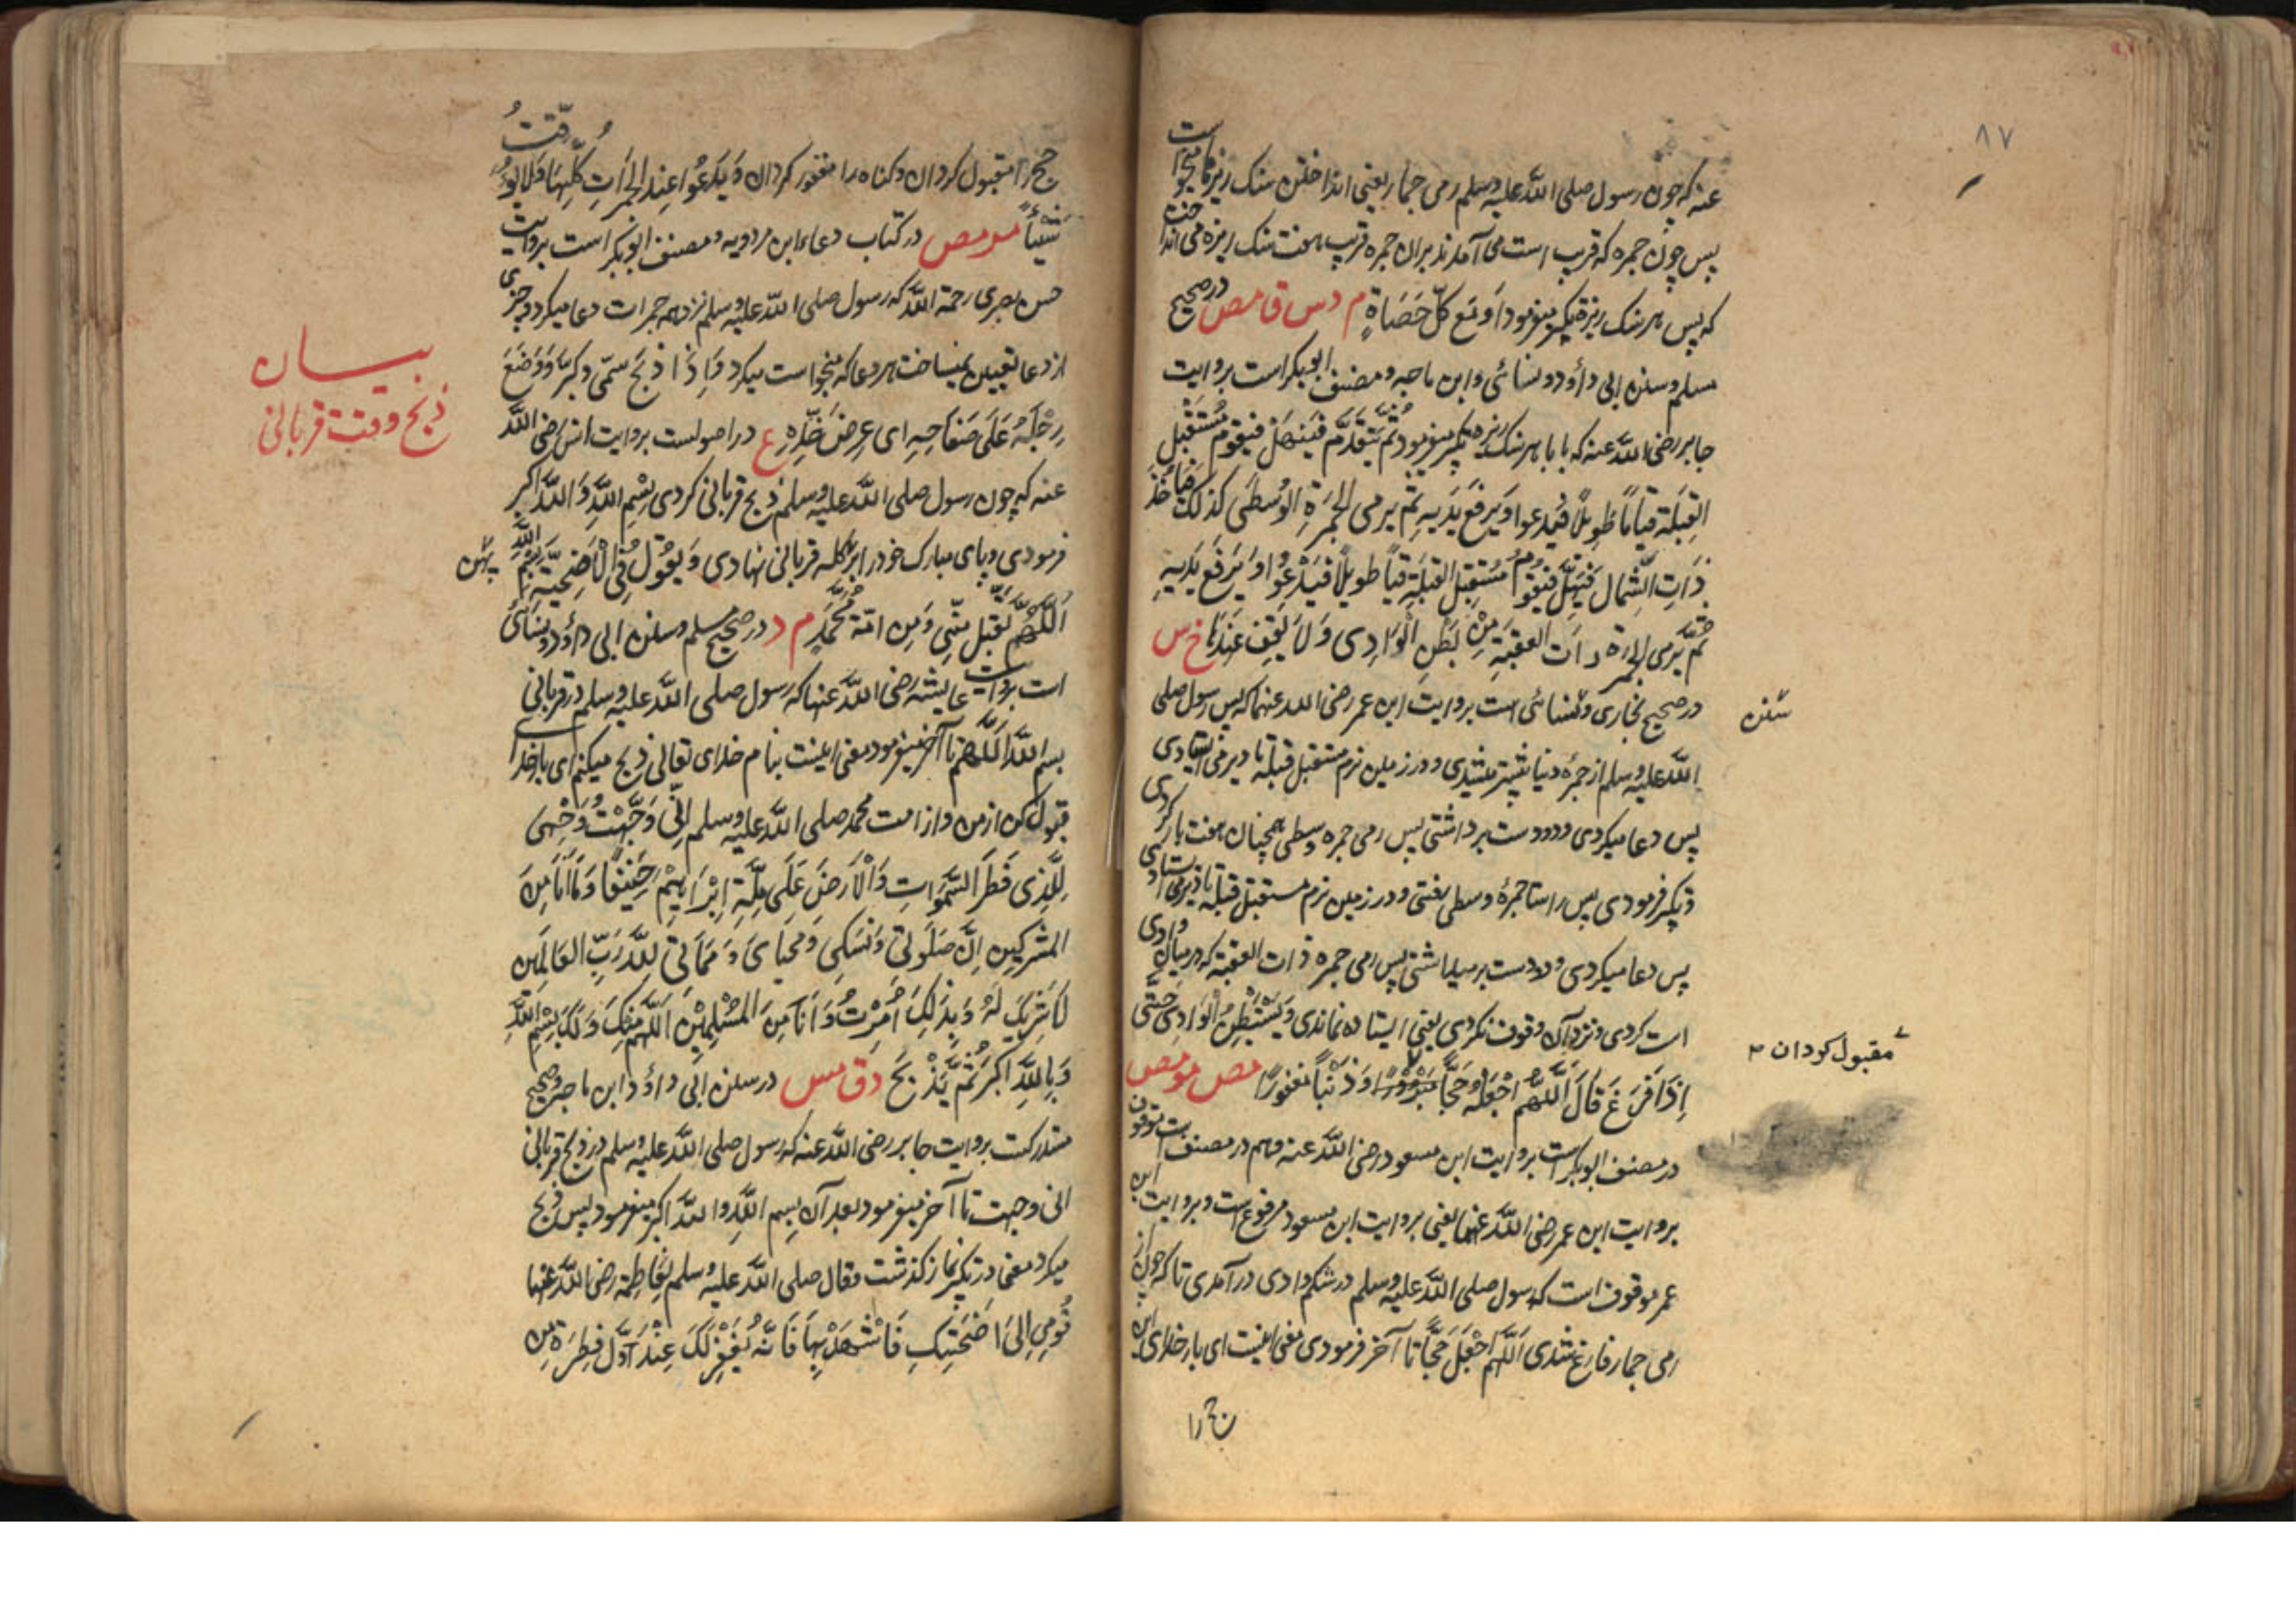 ۸۷
عنه که چون رسول صلی الله علیه وسلم رمی جمار یعنی انداختن سنک ریزها میخواست
پس چون جمره که قریب است می آمدند بران جمره قریب هفت سنک ریزه می انداخت
که پس هر سنک ریزه تکبیر میفرمود اَو مَع کلّ حَصَاةٍ م د س ق مص در صحیح
مسلم وسنن ابی داؤد ونسائی وابن ماجه ومصنف ابوبکر است بروایت
جابر رضی الله عنه که با با هر سنک ریزه تکبیر میفرمود ثُمَّ یَتَقَدَّم فَیَنْهَلُ فیقوم مُسْتَقْبِلَ
القِبلَة قیاماً طَوِیلاً فیدعوا وَیَرفَع یَدَیهِ ثم یرمی الجمرَةِ الوُسطَی کذلک فیأخُذ
ذَاتِ الشِّمال فَیُهِلُّ فیَقوم مُستَقبِل القبلَةِ قیاً طویلاً فَیَدْعُوا وَیَرفَع یَدَیهِ
ثُمَّ یَرمِی الجمرَة ذات العقبَةِ مِنْ بَطْنِ الْوَادِی وَلَا یَقِف عِندَهَا خ س
در صحیح بخاری ونسائی است بروایت ابن عمر رضی الله عنهما که پس رسول صلی
سُنن
الله علیه وسلم از جمرهٔ دنیا پیشتر میشدی ودر زمین نرم مستقبل قبله تا دیر می ایستادی
پس دعا میکردی ودو دست برداشتی پس رمی جمره وسطی همچنان هفت بار کردی
وتکبیر فرمودی پس راستا جمرهٔ وسطی رفتی ودر زمین نرم مستقبل قبله تا دیر می ایستادی
پس دعا میکردی ودو دست بر میداشتی پس رمی جمره ذات العقبة که در میان وادی
است کردی ونزد آن وقوف نکردی یعنی ایستاده نماندی وَیَسْتَبْطِنُ الْوَادِی حَتّی
اِذَا فَرَغَ قَالَ اَللّٰهُمَّ اجْعَلْهُ حَجّاً مَبْرُوْرًا وَذَنْباً مَغفورًا مص مو مص
مقبول کردان
در مصنف ابوبکر است بروایت ابن مسعود رضی الله عنه وهم در مصنف است موقوف
بروایت ابن عمر رضی الله عنهما یعنی بروایت ابن مسعود مرفوع است وبروایت ابن
عمر موقوف است که رسول صلی الله علیه وسلم در شکم وادی در آمدی تا که چون از
رمی جمار فارغ شدی اَللّٰهم اجْعَلْ حَجّاً تا آخر فرمودی معنی اینست ای بار خدای این
حج را
حج را مقبول کردان وکناه را مغفور کردان وَیَدعُوا عِندَ الجَمَرَاتِ کُلِّهَا وَلَا یُوَقِّتُ
شَیْئاً مو مص در کتاب دعاء ابن مردویه ومصنف ابوبکر است بروایت
حسن بصری رحمة الله که رسول صلی الله علیه وسلم نزد همه جمرات دعا میکرد وچیزی
از دعا تعیین نمیساخت هر دعا که میخواست میکرد وَاِذَا ذَبَحَ سَمّی وکَبَّرَ وَوَضَعَ
بیان
ذبح وقت قربانی
رِجْلَهُ عَلَی صَفَاحِهِ ای عِرضَ خَدِّهِ ع در اصولست بروایت انس رضی الله
عنه که چون رسول صلی الله علیه وسلم ذبح قربانی کردی بِسْمِ اللّٰهِ وَاللّٰهُ اکبر
فرمودی وپای مبارک خود را بر کله قربانی نهادی وَیَقُوْل فِی الْاُضْحِیَّةِ بِسْمِ اللّٰهِ
پهن
اَللّٰهُمَّ تَقَبَّل مِنّی وَمِن امّة مُحَمَّدٍ م د در صحیح مسلم وسنن ابی داؤد ونسائی
است بروایت عایشه رضی الله عنها که رسول صلی الله علیه وسلم در قربانی
بسم الله اللّٰهم تا آخر میفرمود معنی اینست بنام خدای تعالی ذبح میکنم ای بار خدای
قبول کن از من واز امت محمد صلی الله علیه وسلم اِنِّی وَجَّهْتُ وَجْهِیَ
لِلَّذِی فَطَرَ السَّمٰوَاتِ وَالْاَرضَ عَلَی مِلَّةِ اِبْرَاهِیْمَ حَنِیْفًا وَمَا اَنَا مِنَ
المشرکِین اِنَّ صَلَوٰتِی وَنُسُکِی وَمَحیَایَ وَمَمَاتِی لِلّٰهِ رَبِّ العَالَمِین
لَا شَرِیکَ لَهُ وَبِذٰلِکَ اُمِرْتُ وَاَنَا مِنَ المُسْلِمِیْنَ اَللّٰهم مِنْکَ وَلَکَ بِسْمِ اللّٰهِ
وَبِاللّٰهِ اکبَر ثُمَّ یَذْبَح د ق مس در سنن ابی داؤد وابن ماجه وصحیح
مستدرکست بروایت جابر رضی الله عنه که رسول صلی الله علیه وسلم در ذبح قربانی
انی وجهت تا آخر میفرمود بعد آن بِسمِ اللّٰهِ واللّٰهُ اکبر میفرمود پس ذبح
میکرد معنی در تکبیر نماز کذشت وقال صلی الله علیه وسلم لِفَاطِمة رضی الله عنها
قُومِی اِلیَ اُضْحِیَتِکِ فَاشْهَدِیْهَا فَاِنَّهُ یُغفَرُ لَکَ عِنْدَ اَوَّل قِطرَة مِن